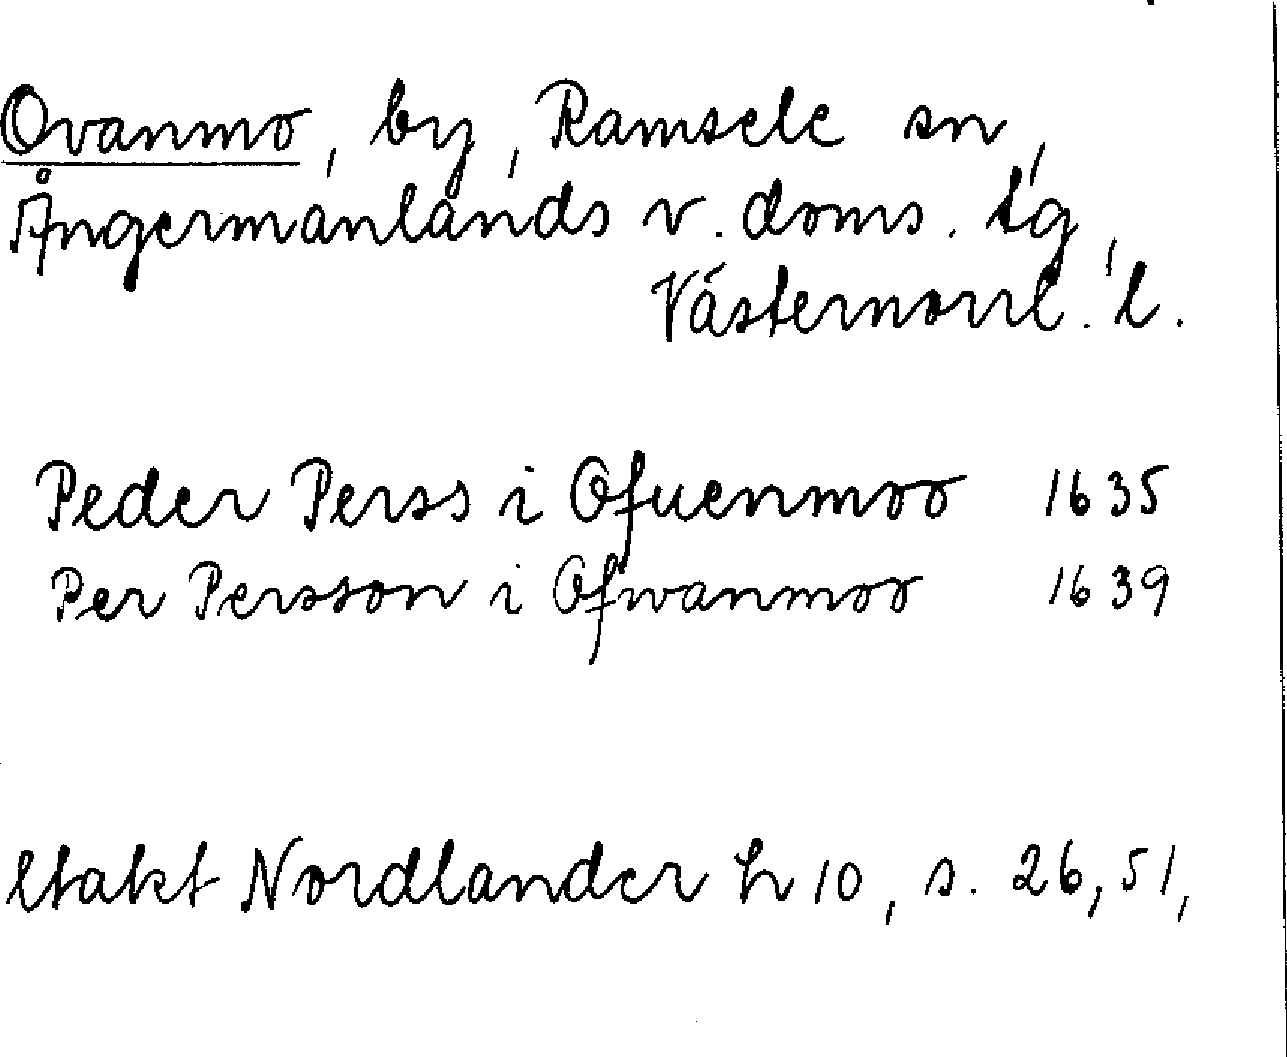 Ovanmo, by, Ramsele sn,
Ångermanlands v. doms. tg,
Västernorrl. l.
Peder Perss i Ofuenmoo 1635
Per Persson i Ofwanmoo 1639
Nordlander h 10, s. 26, 51,